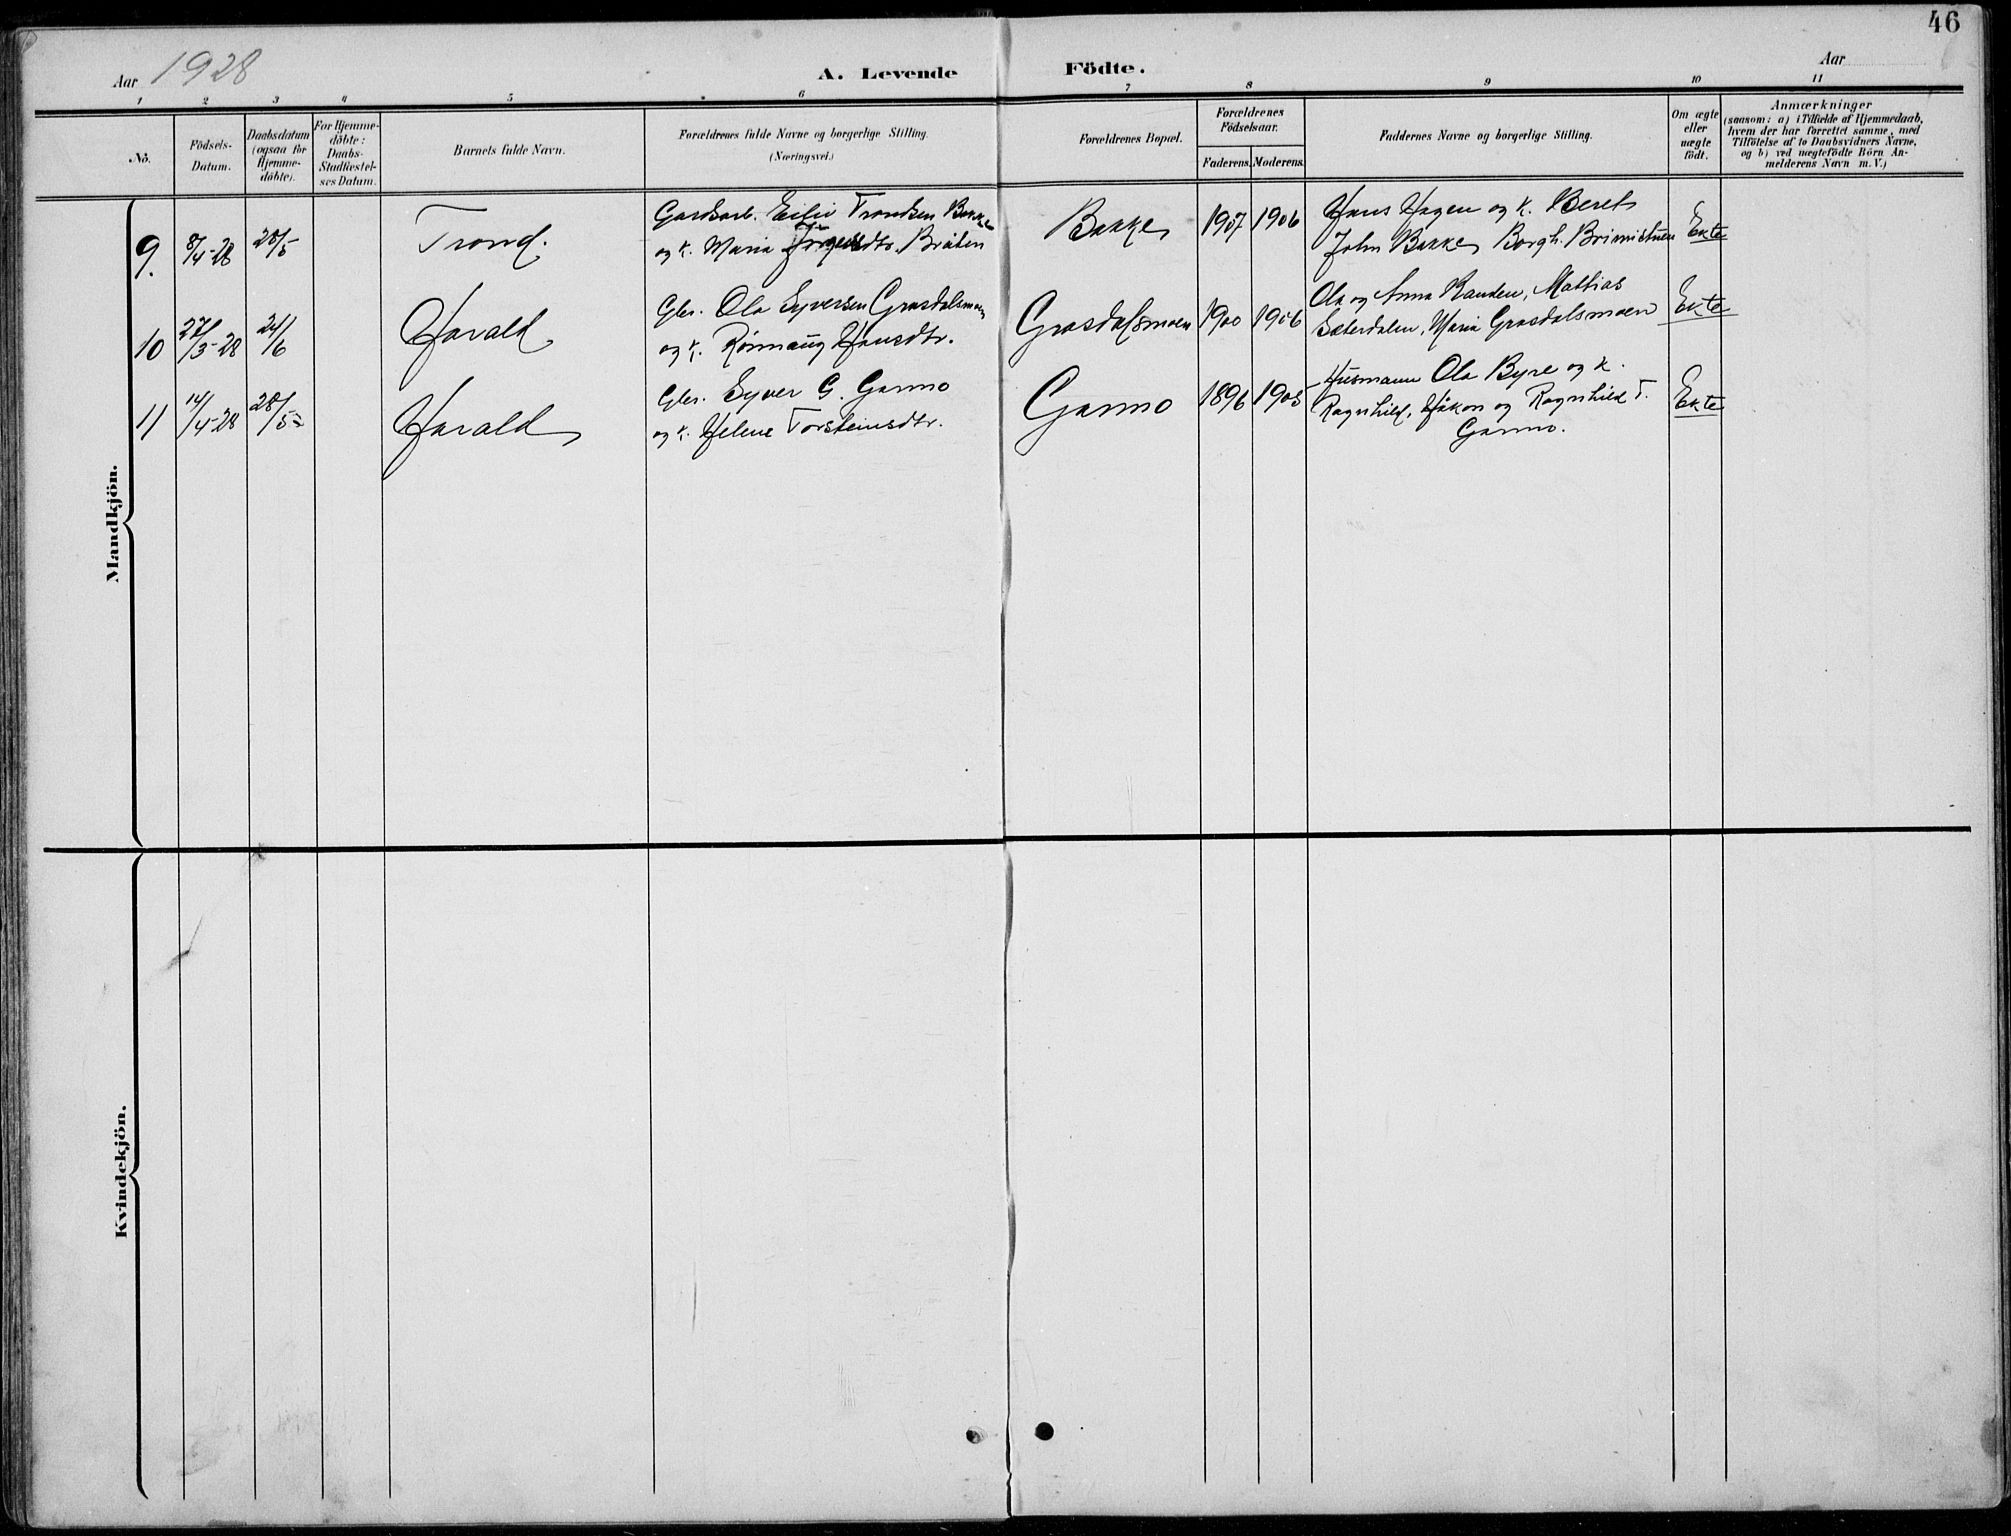 46
Aar 1928
A. Levende Födte.
Aar
1 2 3 4 5 6 7 8 9 10 11
No.
Födsels-
Datum.
Daabsdatum
(ogsaa for
Hjemme-
döbte).
For Hjemme-
döbte:
Daabs-
Stadfæstel-
ses Datum.
Barnets fulde Navn.
Forældrenes fulde Navne og borgerlige Stilling.
(Næringsvei.)
Forældrenes Bopæl.
Forældrenes
Födselsaar.
Faderens. Moderens.
Faddernes Navne og borgerlige Stilling.
Om ægte
eller
uægte
födt.
Anmærkninger
(saasom: a) i Tilfælde af Hjemmedaab,
hvem der har forrettet samme, med
Tilföielse af to Daabsvidners Navne,
og b) ved uægtefödte Börn An-
melderens Navn m. V.)
Mandkjön.
9. 8/4-28 28/5 Trond.
Gardsarb. Eiliv Trondsen Bakke
og k. Maria Jörgensdtr. Bråten
Bakke 1907 1906
Hans Hagen og k. Beret
John Bakke, Borgh. Brimistuen
Ekte
10 27/3-28 24/6 Harald
Gbr. Ola Syversen Grasdalsmoen
og k. Rönnaug Hansdtr.
Grasdalsmoen 1900 1906
Ola og Anna Randen, Mattias
Sæterdalen, Maria Grasdalsmoen
Ekte
11 14/4-28 28/5 Harald
Gbr. Syver G. Garmo
og k. Helene Torsteinsdtr.
Garmo 1896 1905
Husmann Ola Byre og k.
Ragnhild, Håkon og Ragnhild T.
Garmo.
Ekte
Kvindekjön.